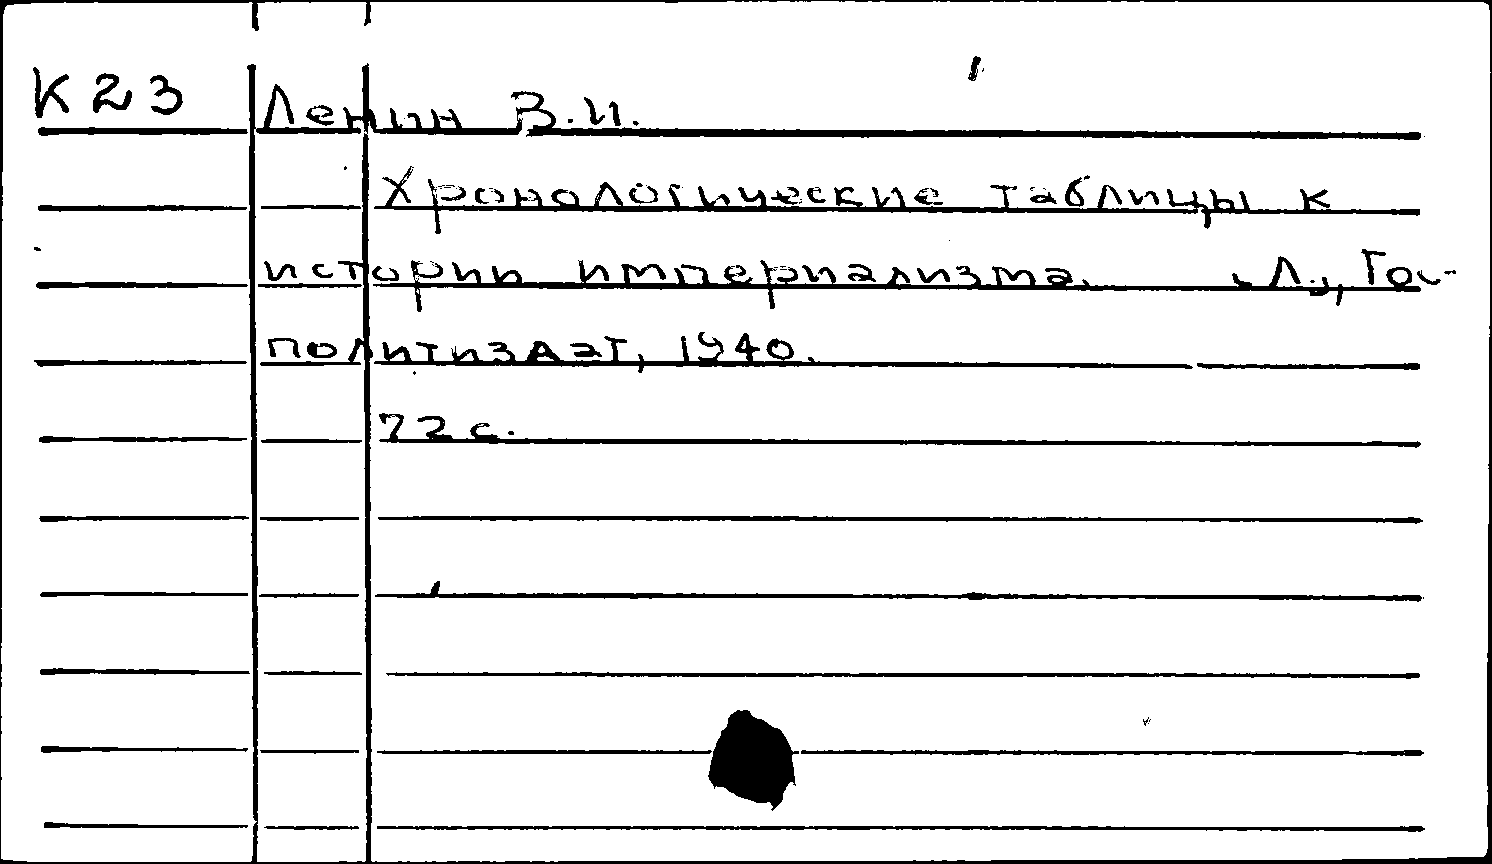 К 23 Ленин В.И.
Хронологические таблицы к
истории империализма. Л., Гос-
политиздат, 1940.
72 с.